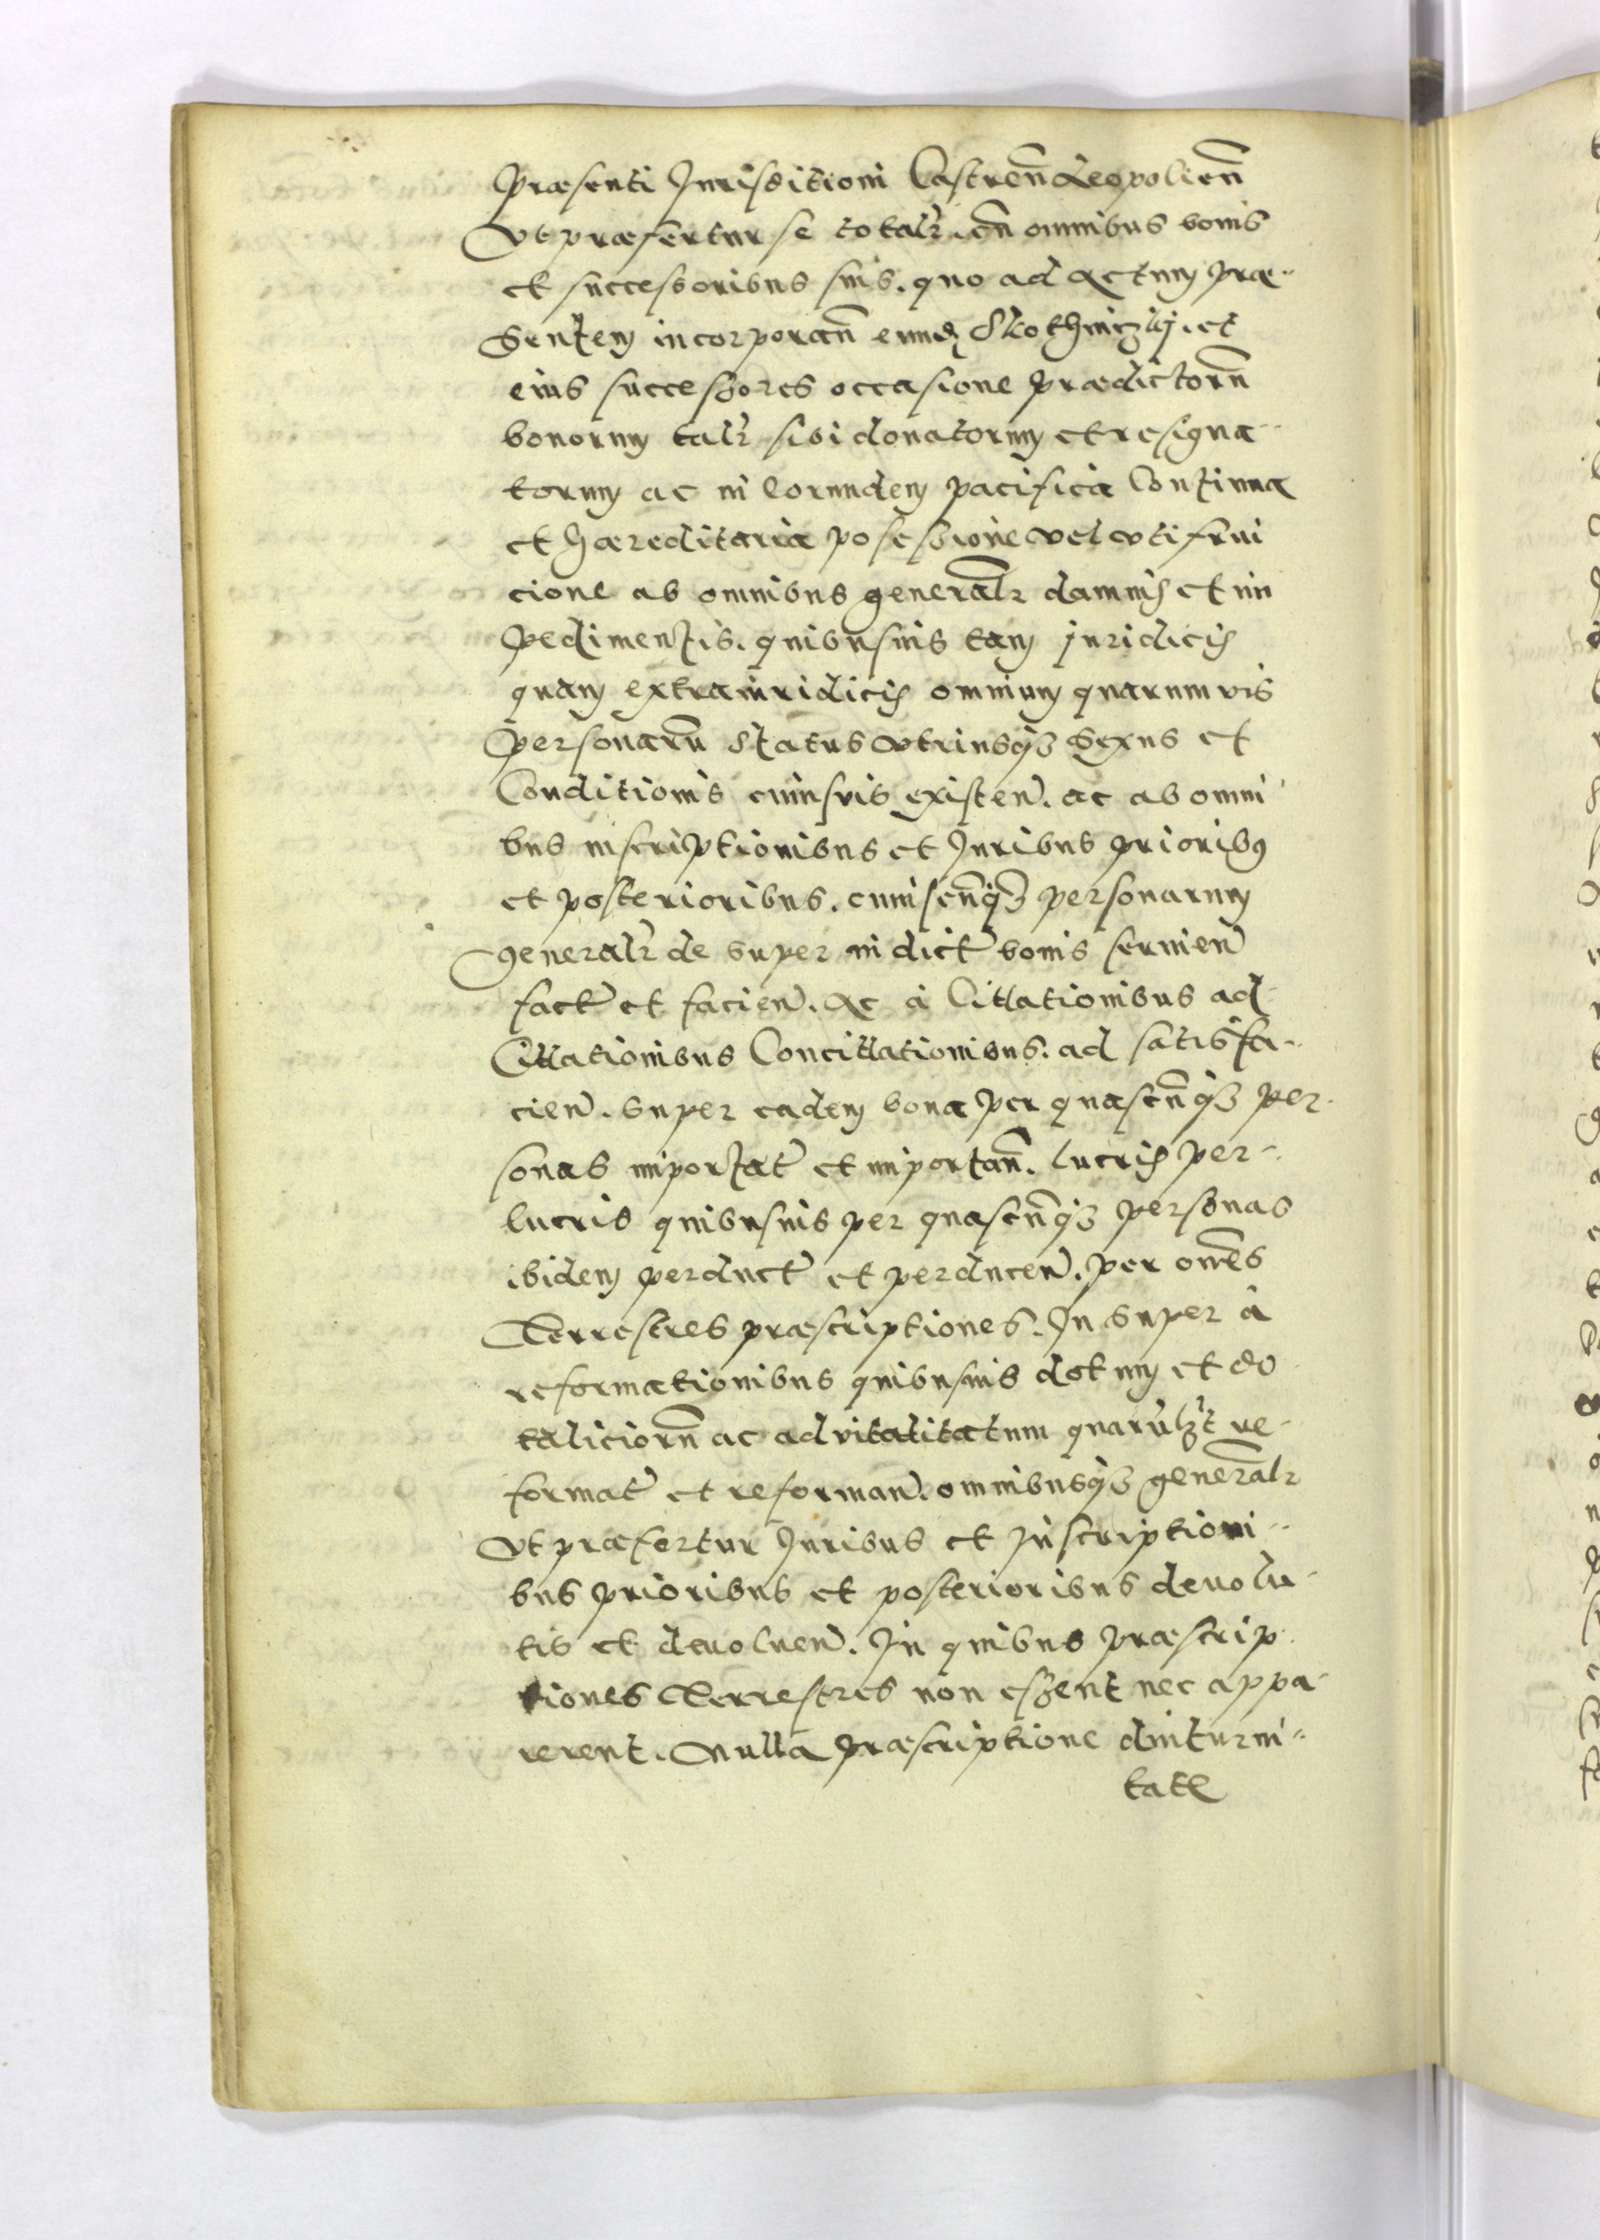 Præsenti Jurisditioni Castren̄ Leopolien̄
Vt præfertur se totalr̄. cū omnibus bonis
et successoribus suis. quo ad Actum præ-
Sentem incorporan̄ eund. Skothniczkÿ. et
eius successores occasione prædictorū
bonorum talr̄ sibi donatorum et resigna-
torum ac in Eorundem pacifica Continua
et hæreditaria posessione vel vtifrui
cione ab omnibus generalr̄ damnis et im
pedimentis. quibusuis tam juridicis
quam extrajuridicis omnium quarumvis
personarū Status vtriusq3 Sexus et
Conditionis cuiusuis existen̄. ac ab omni
bus inscriptionibus et Juribus prioribꝰ
et posterioribus. cuiuscūq3 personarum
Generalr̄ de super in dict̄ bonis seruien̄
fact̄ et facien̄. Ac à Cittationibus ad
Cittationibus Concittationibus. ad satisfa-
cien̄. super eadem bona per quascūq3 per-
sonas importat̄ et importan̄. lucris per-
lucris quibusuis per quascūq3 personas
ibidem perduct̄ et perducen̄. per om̄es
Terrestres præscriptiones. In super à
reformationibus quibusuis dotum et do
taliciorū ac advitalitatum quarūlꝫt re-
format̄ et reforman̄. omnibusq3 generalr̄
Vt præfertur Juribus et Inscriptioni-
bus prioribus et posterioribus deuolu-
tis et deuoluen̄. In quibus præscrip
tiones Terrestres non essent nec appa-
rerent. Nulla præscriptione diuturni-
tate